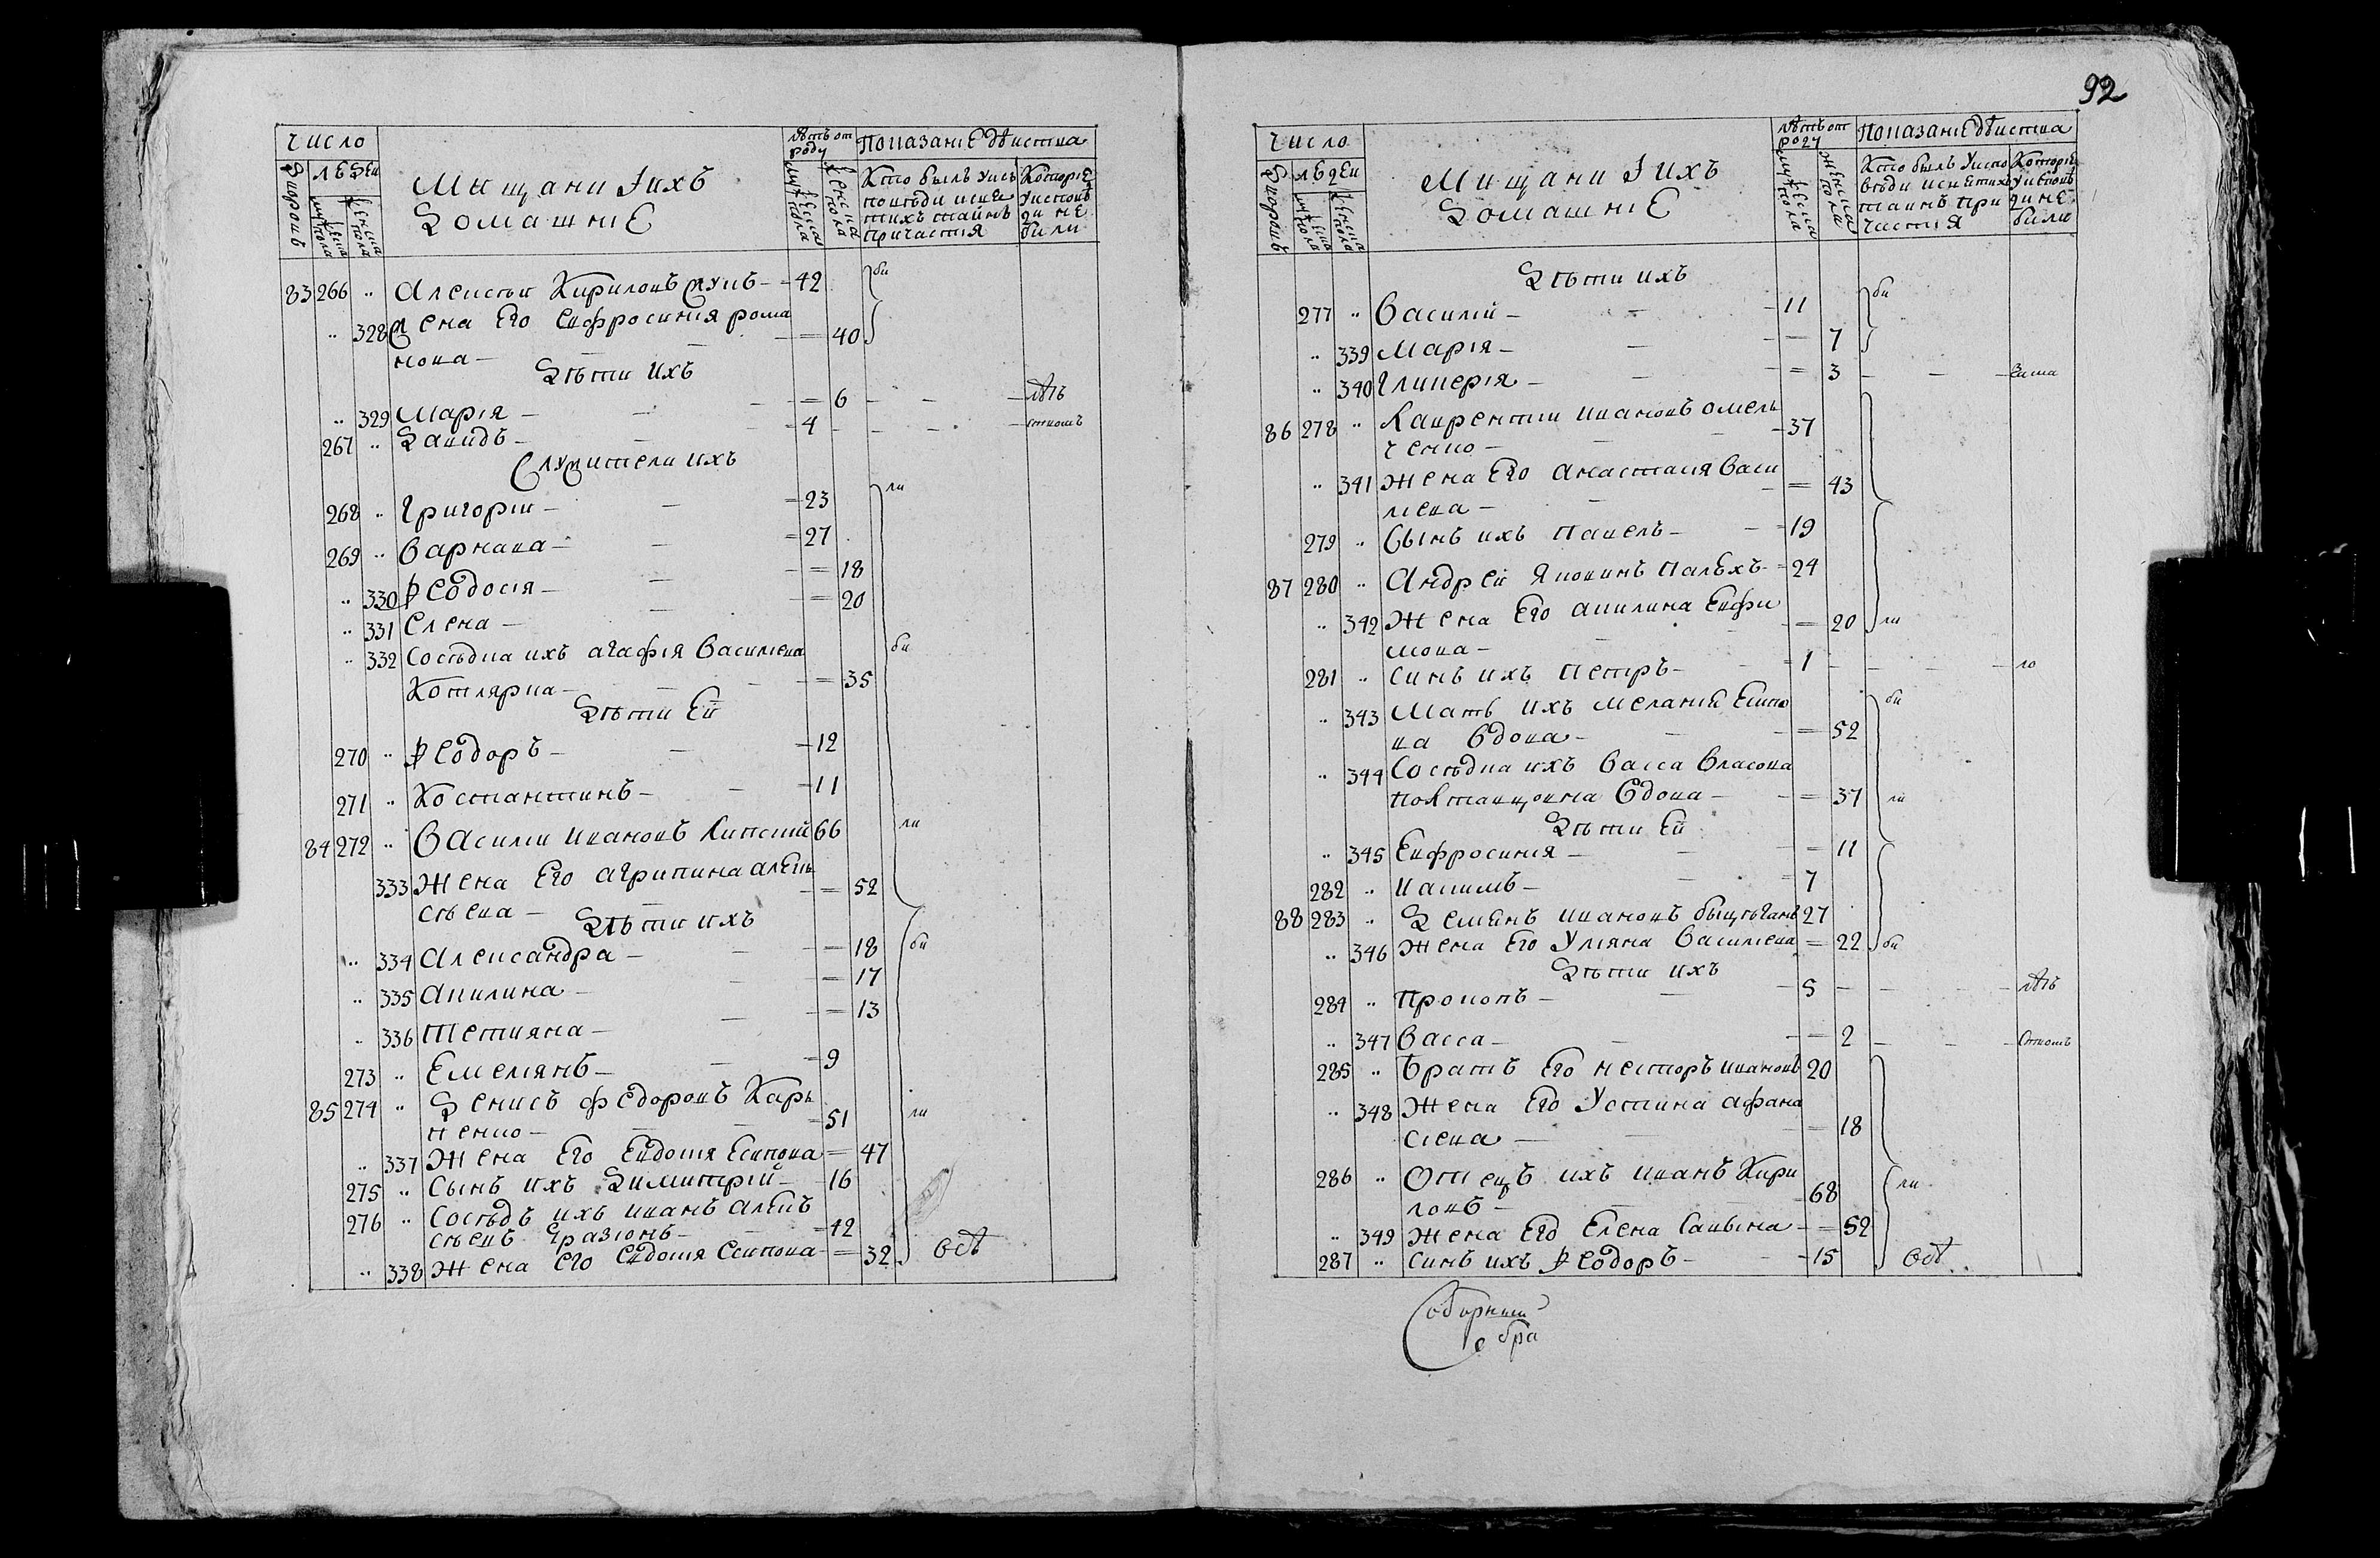 92
Число
Мищани Iихъ
Домашние
лѣтъ от роду
Показание дѣиства
дворовъ
людеи
муж еска пола
женска пола
муж еска пола
женска пола
Кто былъ у исповѣди и святихъ таинъ причастия
Которие у исповѣди не били
83 266 „ Алексѣи Кириловъ — 42 би
„ 328 жена Его Евфросиния рома
нова — 40
Дѣти ихъ
„ 329 Мария — 6 — — лѣтъ
267 „ Давидъ — 4 — —
Служители ихъ
268 „ Григории — 23 ли
269 „ Варнава — 27
„ 330 Феодосия — 18
„ 331 Елена — 20
„ 332 Сосѣдка ихъ агафия Василиева
Котлярка — 35 би
Дѣти Еи
270 „ Феодоръ — 12
271 „ Костантинъ — 11
84 272 „ Василии Ивановъ Липский 66 ли
333 Жена Его агрипина алек
сѣева — 52
Дѣти ихъ
„ 334 Александра — 18 би
„ 335 Акилина — 17
„ 336 Тетияна — 13
273 „ Емелиянъ — 9
85 274 „ Денисъ федоровъ Карь
пенко — 51 ли
„ 337 Жена Его Евдокия Есипова — 47
275 „ Сынъ ихъ Димитрий — 16
276 „ Сосѣдъ ихъ иванъ алек
сѣевъ — 42
„ 338 Жена его Евдокия Есипова — 32 всѣ
Число
Мищани Iихъ
Домашние
лѣтъ от роду
Показание дѣиства
дворовъ
людеи
муж еска пола
женска пола
муж еска пола
женска пола
Кто былъ у исповѣди и святихъ таинъ причастия
Которие у исповѣди не били
Дѣти ихъ
277 „ Василий — 11 би
„ 339 Мария — 7
„ 340 Гликерия — 3 — —
86 278 „ Лаврентии ивановъ омель
ченко — 37
„ 341 Жена Его анастасия Васи
лиева — 43
279 „ Сынъ ихъ павелъ — 19
87 280 „ Андрей Яковинъ — 24
„ 342 Жена Его акилина Евфи
мова — 20 ли
281 „ Синъ ихъ петръ — 1 — —
„ 343 Мать ихъ мелания
ва Вдова — 52 би
„ 344 Сосѣдка ихъ Васса Власова
Вдова — 37 ли
Дѣти Еи
„ 345 Евфросиния — 11
282 „ иакимъ — 7
88 283 „ Демянъ ивановъ 27
„ 346 Жена Его Улияна Василиева — 22 би
Дѣти ихъ
284 „ Прокопъ — 5 — — лѣтъ
„ 347 Васса — 2 — —
285 „ Братъ Его несторъ ивановъ 20
„ 348 Жена Его Устина афана
сиева — 18
286 „ Отецъ ихъ иванъ Кири
ловъ — 68 ли
„ 349 Жена Его Елена Савына — 52
287 „ Синъ ихъ Феодоръ — 15 всѣ